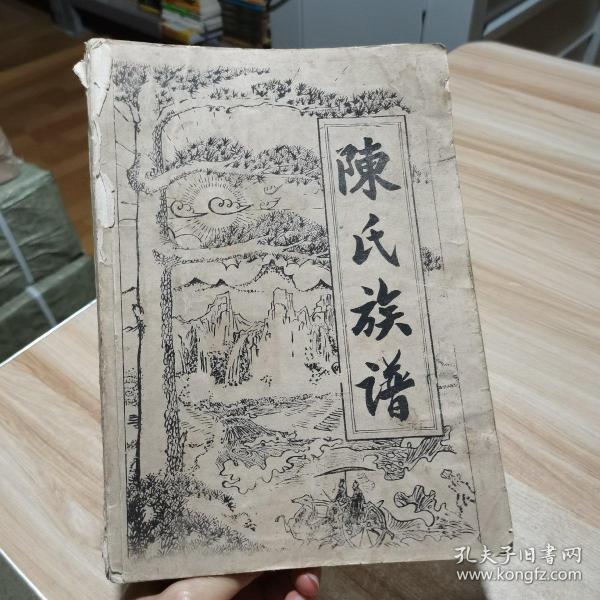 陳氏族谱
孔夫子旧書网
www.kongfz.com